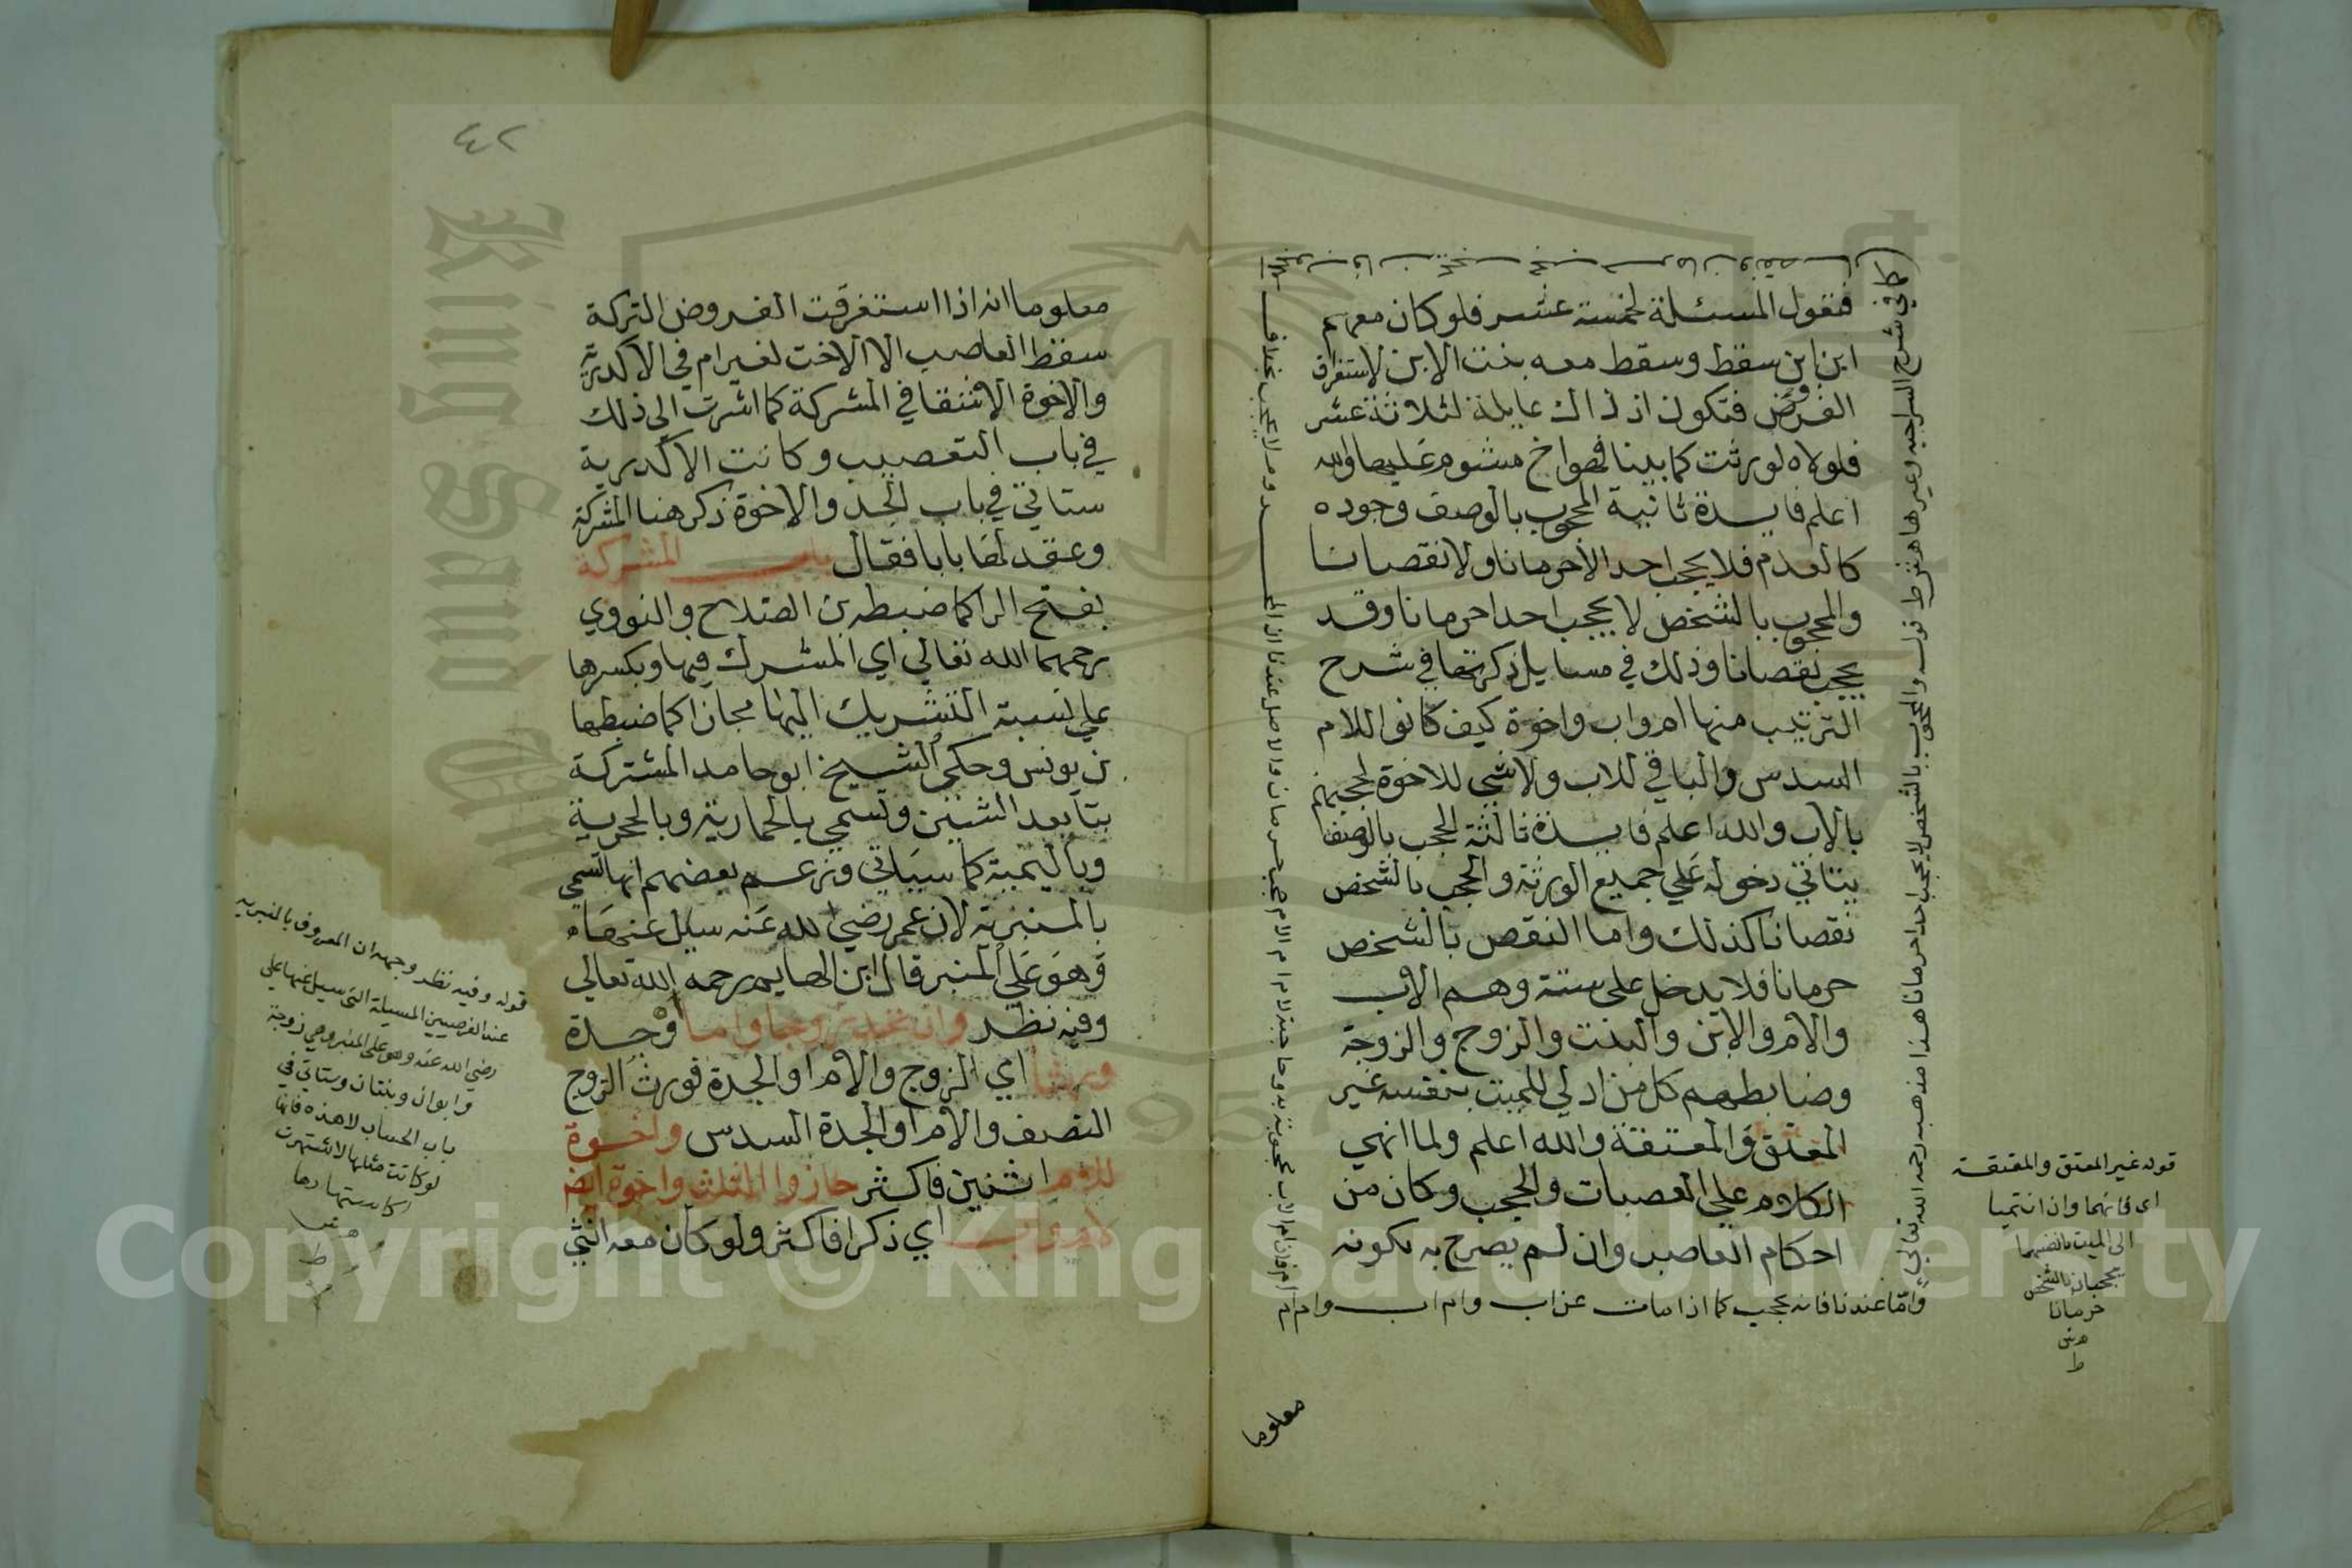 فنقول المسئلة لخمسة عشر فلو كان معهم
ابن ابن سقط وسقط معه بنت الابن لاستغراق
الفروض فتكون اذ ذاك عايلة لثلاثة عشر
فلولاه لورثت كما بينا فهو اخ مشوم عليها والله
اعلم فايدة ثانية المحجوب بالوصف وجوده
كالعدم فلا يحجب احدا لا حرمانا ولا نقصانا
والمحجوب بالشخص لا يحجب احدا حرمانا وقد
يحجب نقصانا وذلك في مسايل ذكرتها في شرح
الترتيب منها ام واب واخوة كيف كانوا للام
السدس والباقي للاب ولا شي للاخوة لحجبهم
بالاب والله اعلم فايدة ثالثة الحجب بالوصف
يتاتي دخوله علي جميع الورثة والحجب بالشخص
نقصانا كذلك واما النقص بالشخص
حرمانا فلا يدخل على ستة وهم الاب
والام والابن والبنت والزوج والزوجة
وضابطهم كل من ادلي للميت بنفسه غير
المعتق والمعتقة والله اعلم ولما انهي
الكلام علي العصبات والحجب وكان من
احكام العاصب وان لم يصرح به بكونه
واما عندنا فانه يحجب كما اذا مات عن اب وام اب وام ام ام
كما في شرح السراجيه وغيرها هش ط قوله والمحجوب بالشخص لا يحجب احدا حرمانا هذا مذهبه رحمه الله تعالي
قوله غير المعتق والمعتقة
اى فانهما واذا انتميا
الى الميت بانفسهما
يحجبان بالشخص
حرمانا
هش
ط
معلوما
٤٢
معلوما انه اذا استغرقت الفروض التركة
سقط العاصب الا الاخت لغير ام في الاكدرية
والاخوة الاشقا في المشركة كما اشرت الي ذلك
في باب التعصيب وكانت الاكدرية
ستاتي في باب الجد والاخوة ذكر هنا المشركة
وعقد لها بابا فقال باب المشركة
بفتح الرا كما ضبطه بن الصلاح والنووي
رحمهما الله تعالي اي المشرك فيها وبكسرها
علي نسبة التشريك اليها مجازا كما ضبطها
بن يونس وحكى الشيخ ابو حامد المشتركة
بتا بعد الشين وتسمي بالحمارية وبالحجرية
وباليمية كما سياتي وزعم بعضهم انها تسمي
بالمنبرية لان عمر رضي الله عنه سيل عنها
وهو علي المنبر قال ابن الهايم رحمه الله تعالي
وفيه نظر وان تجد زوجا واما او جدة
ورثا اي الزوج والام او الجدة فورث الزوج
النصف والام او الجدة السدس واخوة
للام اثنين فاكثر حازوا الثلث واخوة ايضا
لام واب اي ذكرا فاكثر ولو كان معه انثي
قوله وفيه نظر وجهه ان المعروف بالمنبريه
عند الفرضيين المسيلة التى سيل عنها علي
رضي الله عنه وهو على المنبر وهي زوجة
وابوان وبنتان وستاتي في
باب الحساب لا هذه فانها
لو كانت مثلها لاشتهرت
كاشتهارها
هش
ط